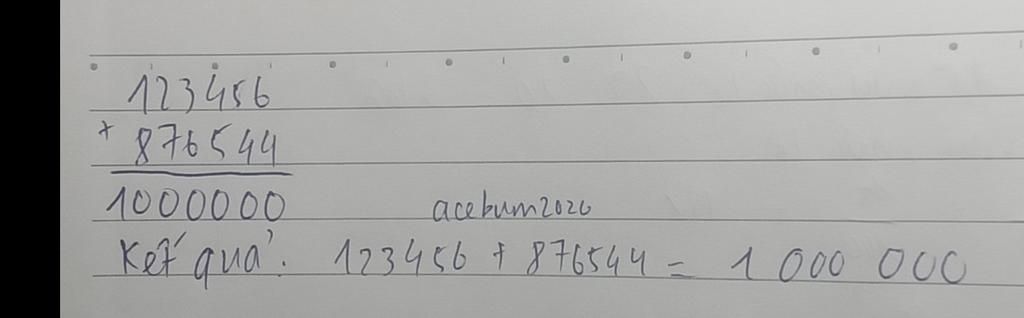 123456
+ 876544
1000000
acebum2026
Kết quả: 123456 + 876544 = 1 000 000